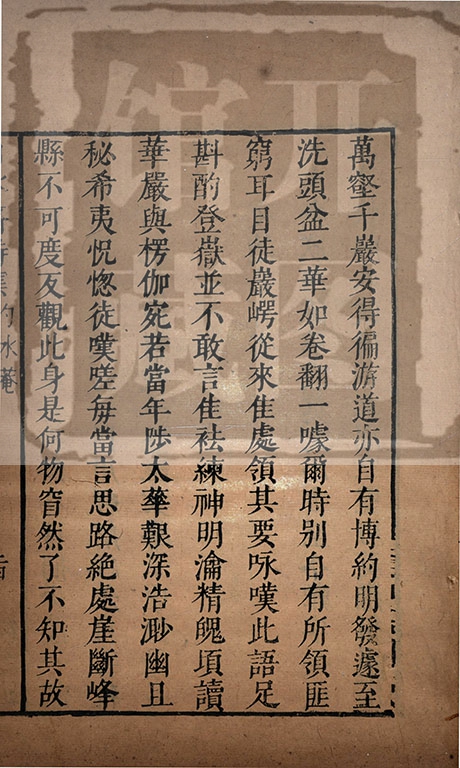 萬壑千巖安得徧游道亦自有博約明發遽至
洗頭盆二華如卷翻一噱爾時別自有所領匪
窮耳目徒巖崿從來佳處領其要咏嘆此語足
斟酌登嶽並不敢言佳袪練神明瀹精魄頃讀
華嚴與楞伽宛若當年陟太華艱深浩渺幽且
秘希夷怳惚徒嘆嗟每當言思路絕處崖斷峰
縣不可度反觀此身是何物窅然了不知其故